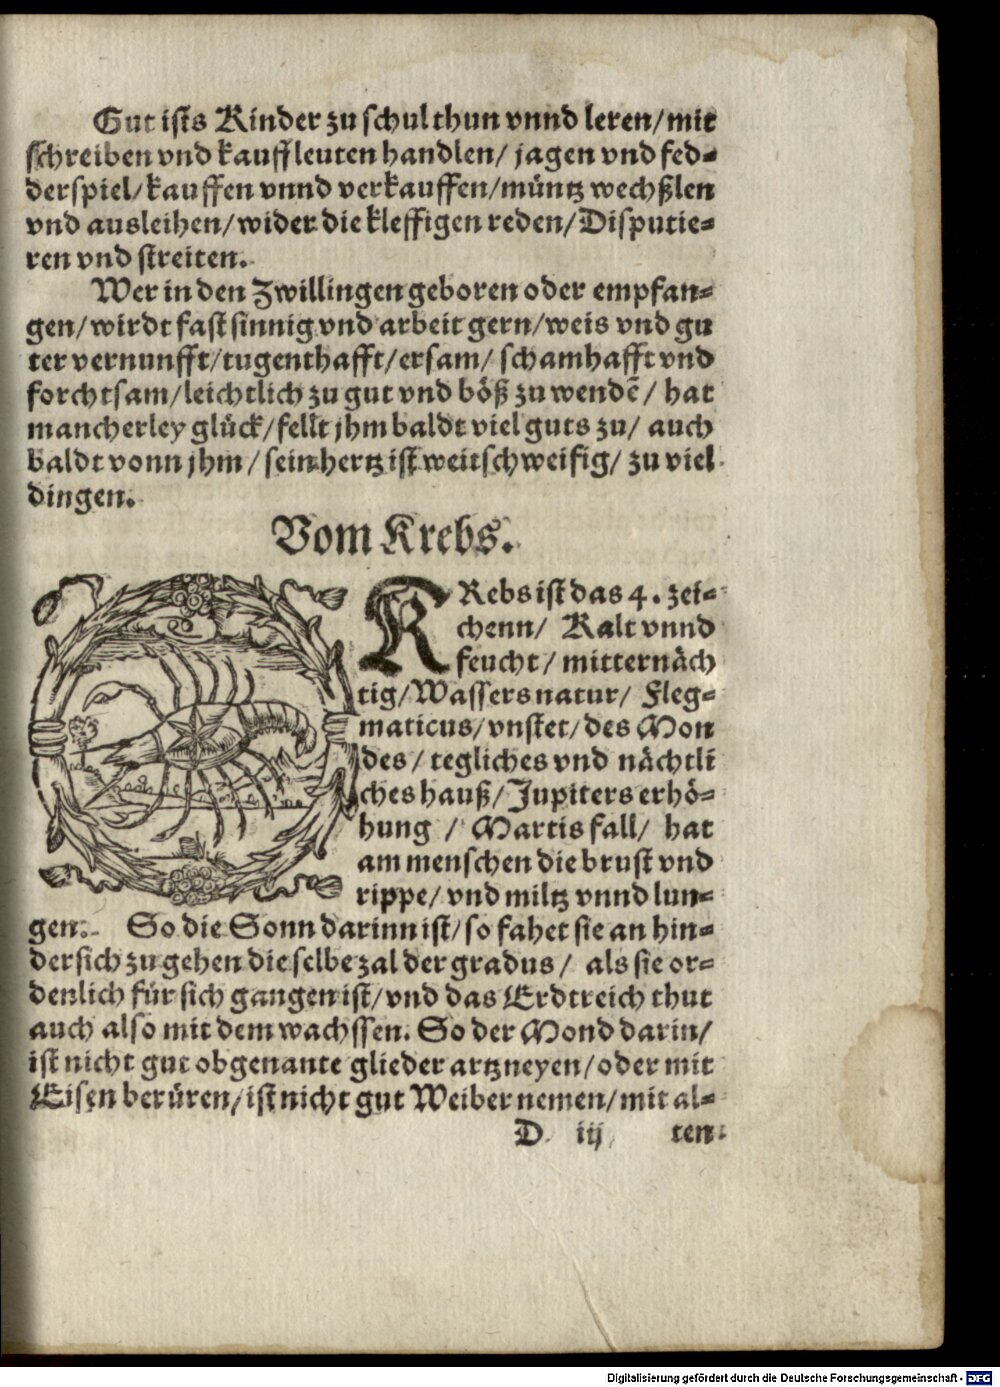 Gut ists Kinder zu schul thun vnnd leren/ mit
schreiben vnd kauffleuten handlen/ jagen vnd fed-
derspiel/ kauffen vnnd verkauffen/ müntz wechßlen
vnd ausleihen/ wider die kleffigen reden/ Disputie-
ren vnd streiten.
Wer in den Zwillingen geboren oder empfan-
gen/ wirdt fast sinnig vnd arbeit gern/ weis vnd gu
ter vernunfft/ tugenthafft/ ersam/ schamhafft vnd
forchtsam/ leichtlich zu gut vnd böß zu wendē/ hat
mancherley glück/ fellt jhm baldt viel guts zu/ auch
baldt vonn jhm/ sein hertz ist weitschweifig/ zu viel
dingen.
Vom Krebs.
KRebs ist das 4. zei-
chenn/ Kalt vnnd
feucht/ mitternäch
tig/ Wassers natur/ Fleg-
maticus/ vnstet/ des Mon
des/ tegliches vnd nächtli
ches hauß/ Jupiters erhö-
hung / Martis fall/ hat
am menschen die brust vnd
rippe/ vnd miltz vnnd lun-
gen. So die Sonn darinn ist/ so fahet sie an hin-
dersich zu gehen die selbe zal der gradus/ als sie or-
denlich für sich gangen ist/ vnd das Erdtreich thut
auch also mit dem wachssen. So der Mond darin/
ist nicht gut obgenante glieder artzneyen/ oder mit
Eisen berüren/ ist nicht gut Weiber nemen/ mit al-
D iij ten
Digitalisierung gefördert durch die Deutsche Forschungsgemeinschaft - DFG